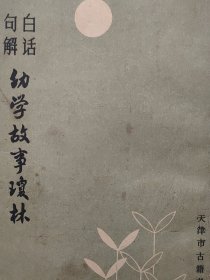 白话
句解
幼学故事琼林
天津市古籍